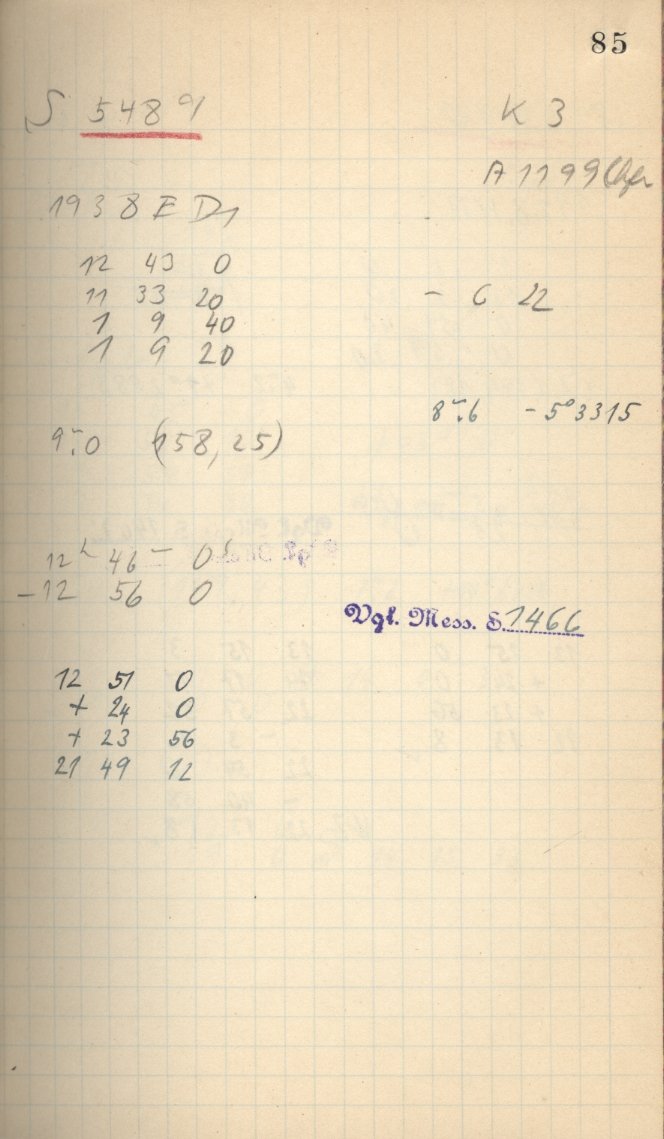 85
S 5489 K 3
A 1199
1938 E D1
12 43 0
11 33 20 - 6 22
1 9 40
1 9 20
8m.6 - 5°3315
9m.0 (158,25)
12h 46m 0s
-12 56 0
Vgl. Mess. S. 1466
12 51 0
+ 24 0
+ 23 56
21 49 12